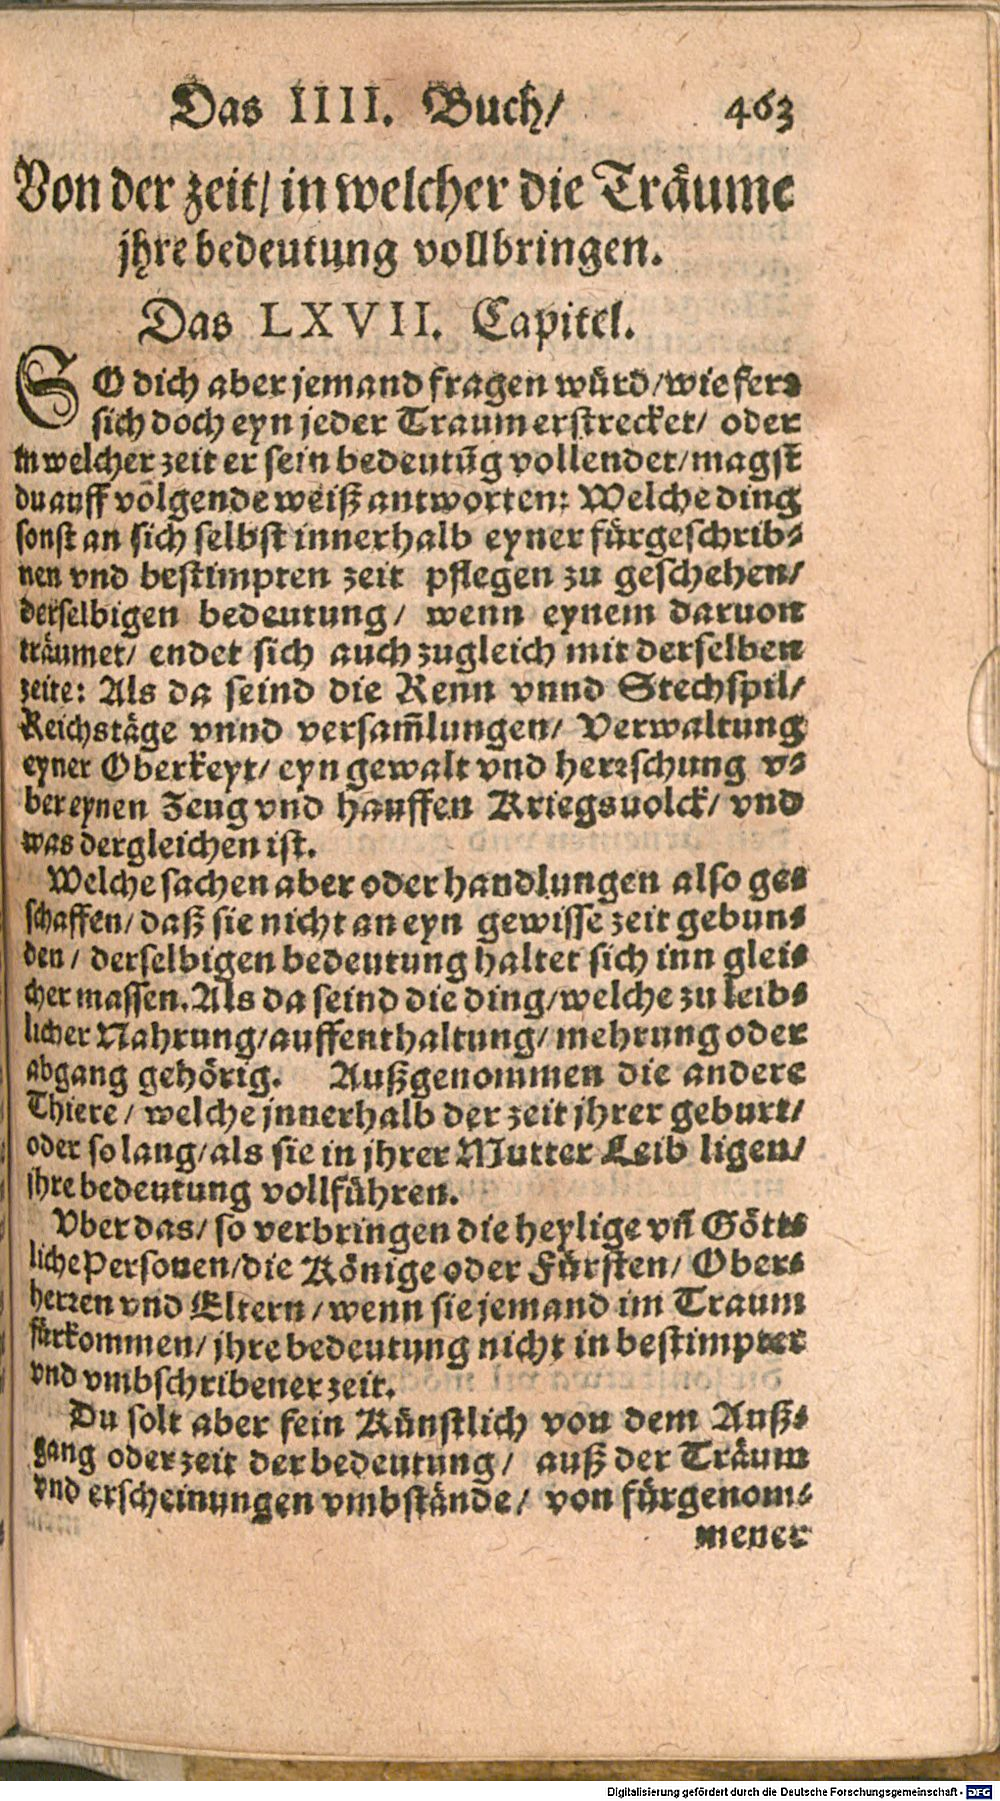 Das IIII. Buch/ 463
Von der zeit/ in welcher die Träume
jhre bedeutung vollbringen.
Das LXVII. Capitel.
SO dich aber jemand fragen würd/wie fern
sich doch eyn jeder Traum erstrecket/ oder
in welcher zeit er sein bedeutūg vollendet/magst
du auff volgende weiß antworten: Welche ding
sonst an sich selbst innerhalb eyner fürgeschrib⸗
nen vnd bestimpten zeit pflegen zu geschehen/
derselbigen bedeutung/ wenn eynem daruon
träumet/ endet sich auch zugleich mit derselben
zeite: Als da seind die Renn vnnd Stechspil/
Reichstäge vnnd versam̃lungen/ Verwaltung
eyner Oberkeyt/ eyn gewalt vnd herrschung v⸗
ber eynen Zeug vnd hauffen Kriegsuolck/ vnd
was dergleichen ist.
Welche sachen aber oder handlungen also ge⸗
schaffen/ daß sie nicht an eyn gewisse zeit gebun⸗
den/ derselbigen bedeutung haltet sich inn glei⸗
cher massen. Als da seind die ding/welche zu leib⸗
licher Nahrung/auffenthaltung/mehrung oder
abgang gehörig. Außgenommen die andere
Thiere/ welche jnnerhalb der zeit jhrer geburt/
oder so lang/als sie in jhrer Mutter Leib ligen/
jhre bedeutung vollführen.
Vber das/ so verbringen die heylige vñ Gött⸗
liche Personen/die Könige oder Fürsten/ Ober⸗
herren vnd Eltern/wenn sie jemand im Traum
fürkommen/ jhre bedeutung nicht in bestimpter
vnd vmbschribener zeit.
Du solt aber fein Künstlich von dem Auß⸗
gang oder zeit der bedeutung/ auß der Träum
vnd erscheinungen vmbstände/ von fürgenom⸗
mener
Digitalisierung gefördert durch die Deutsche Forschungsgemeinschaft - DFG